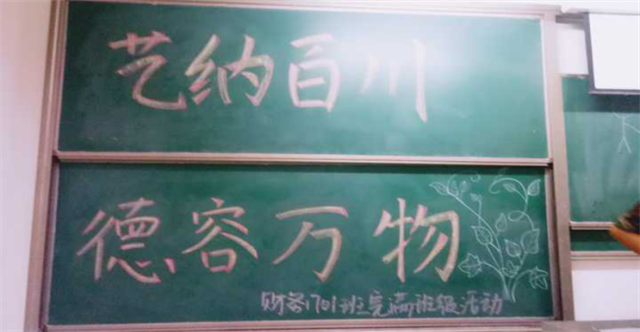 艺纳百川
德容万物
财务1701班完满班级活动